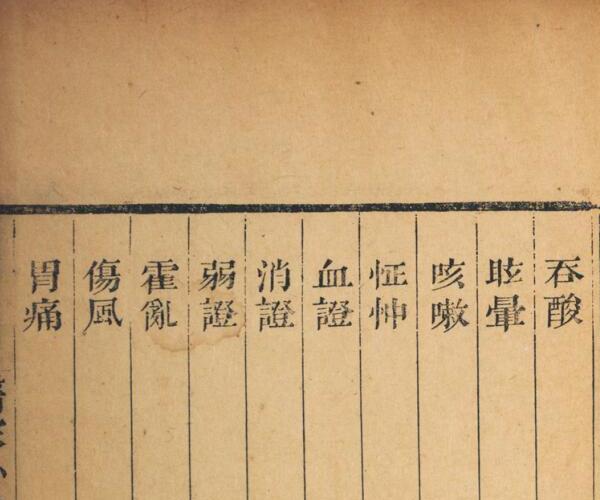 吞酸
眩暈
咳嗽
怔忡
血證
消證
弱證
霍亂
傷風
胃痛